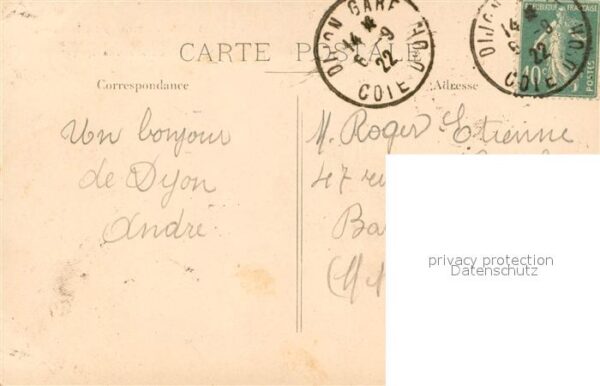 CARTE POSTALE
DIJON GARE
14 *
6 - 9
22
COTE D'OR
DIJON
14 *
9
22
COTE D'OR
REPUBLIQUE FRANCAISE
10 c
POSTES
Correspondance
Adresse
Un bonjour
de Dijon
André
M. Roger Etienne
47 rue
Ba
(M
privacy protection
Datenschutz